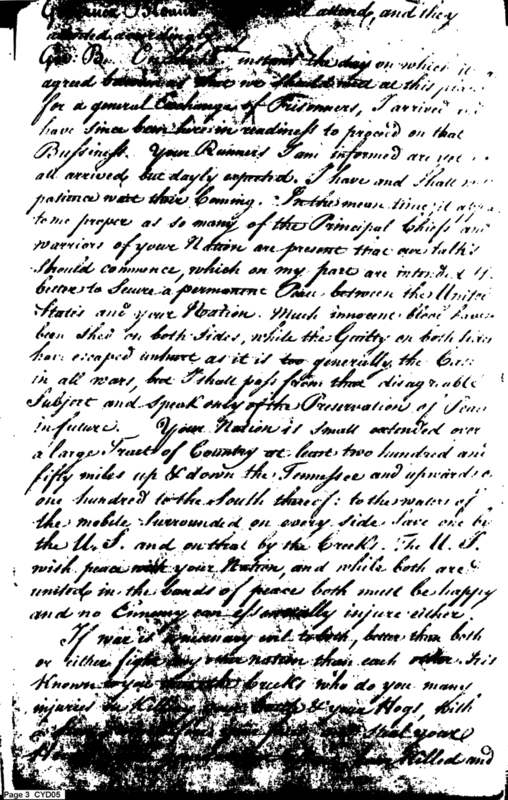 attend, and they
attended accordingly
Gov. B. On the instant the day on which it
agreed between us that we should meet at this place
for a general Exchange of Prisonners, I arrived and
have since been here in readiness to proceed on that
Bussiness. Your Runners I am informed are not
all arrived, but dayly expected. I have and shall
patience wait their Coming. In the mean time, it
to me proper as so many of the Principal Chiefs and
warriors of your Nation are present that our talks
should commence, which on my part are intended
better to secure a permanent Peace between the United
States and your Nation. Much innocent blood have
been shed on both sides, while the Guilty on both sides
have escaped unhurt as it is too generally the Case
in all wars, but I shall pass from that disagreable
Subject and speak only of the Preservation of Peace
in future. Your Nation is small extended over
a large Tract of Country at least two hundred and
fifty miles up & down the Tennessee and upwards of
one hundred to the South thereof: to the waters of
the mobile Surrounded on every side save one by
the U. S. and on that by the Creeks. The U. S.
wish peace with your Nation, and while both are
united in the bands of peace both must be happy
and no Ennemy can essentially injure either
If war is a necessary evil to both, better then both
or either fight any other nation than each other. It is
Known to you that the Creeks who do you many
injuries in Killing your & your Hogs,
your
Killed and
Page 3 CYD05